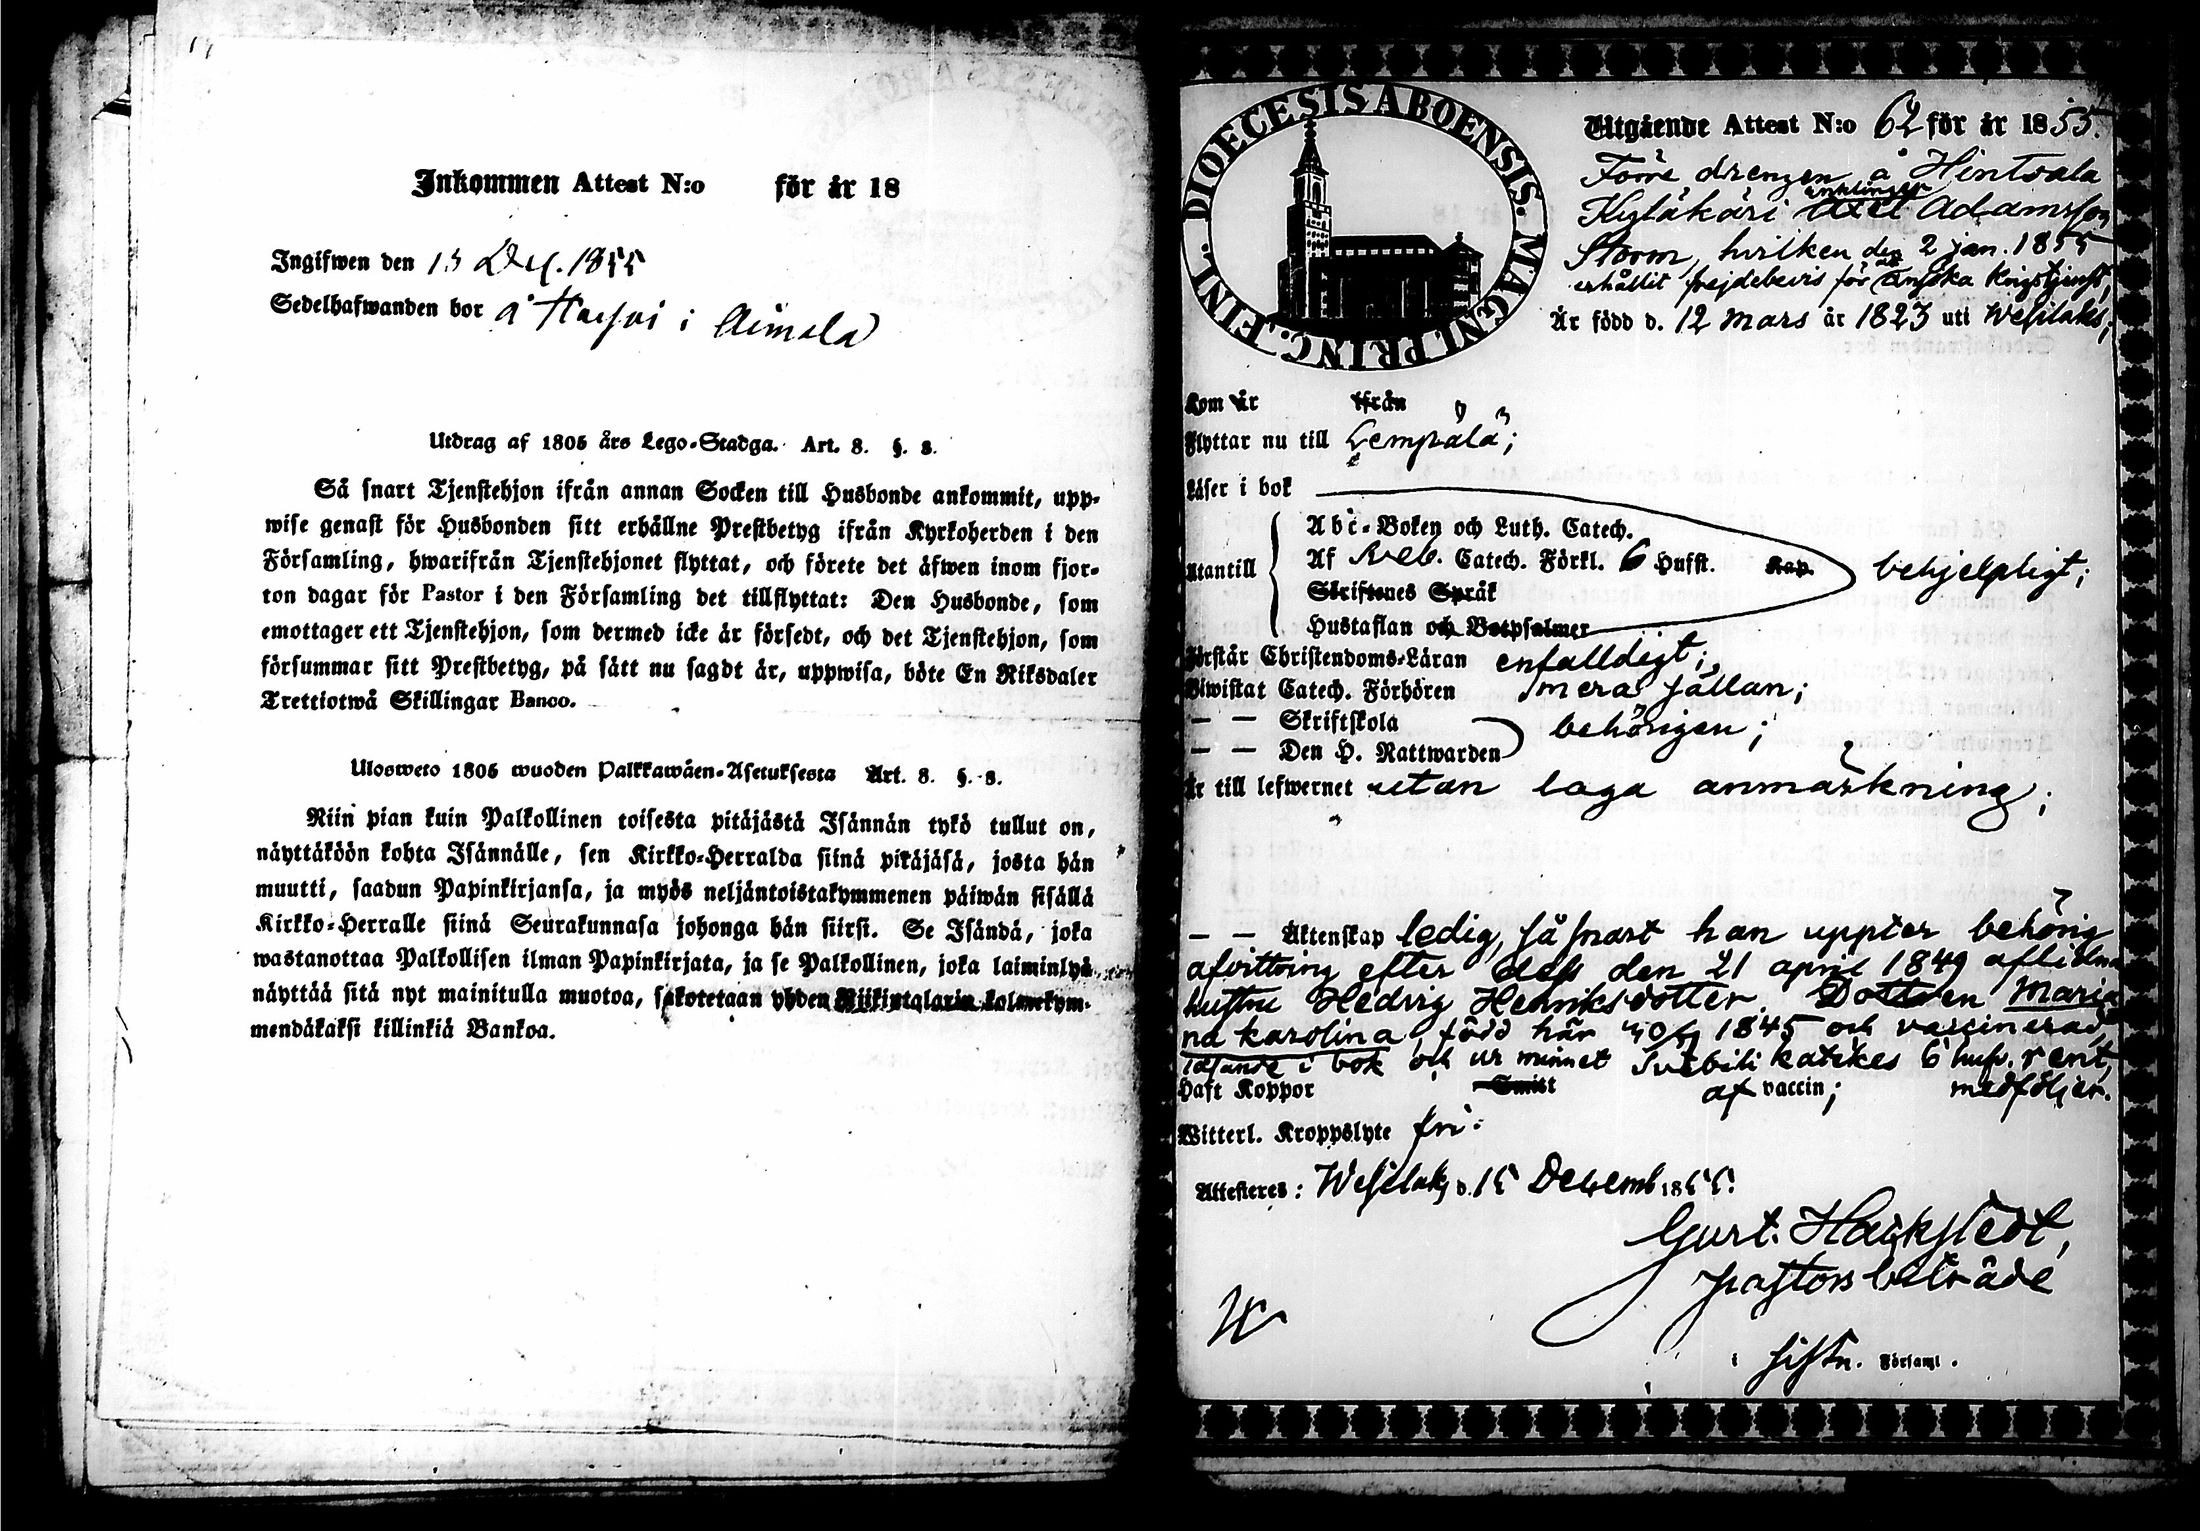 Inkommen Attest N:o för år 18
Ingifwen den 15 Dec. 1855
Sedelhafwanden bor å i Aimala
Utdrag af 1805 års Lego-Stadga. Art. 8. §. 8.
Så snart Tjenstehjon ifrån annan Socken till Husbonde ankommit, upp-
wise genast för Husbonden sitt erhållne Prestbetyg ifrån Kyrkoherden i den
Församling, hwarifrån Tjenstehjonet flyttat, och förete det äfwen inom fjor-
ton dagar för Pastor i den Församling det tillflyttat: Den Husbonde, som
emottager ett Tjenstehjon, som dermed icke är försedt, och det Tjenstehjon, som
försummar sitt Prestbetyg, på sätt nu sagdt är, uppwisa, böte En Riksdaler
Trettiotwå Skillingar Banco.
Ulosweto 1805 wuoden Palkkawäen-Asetuksesta Art. 8. §. 8.
Niin pian kuin Palkollinen toisesta pitäjästä Isännän tykö tullut on,
näyttäköön kohta Isännälle, sen Kirkko-Herralda siinä pitäjäsä, josta hän
muutti, saadun Papinkirjansa, ja myös neljäntoistakymmenen päiwän sisällä
Kirkko-Herralle siinä Seurakunnasa johonga hän siirsi. Se Isändä, joka
wastanottaa Palkollisen ilman Papinkirjata, ja se Palkollinen, joka laiminlyö
näyttää sitä nyt mainitulla muotoa, sakotetaan yhden Riikintalarin kolmekym-
mendäkaksi killinkiä Bankoa.
FINL. DIOECESIS ABOENSIS. MAGNI PRINC.
Utgående Attest N:o 62 för år 1855.
Förre drengen å Hintsala
Kyläkäri änklingen Axel Adamsson
Storm, hvilken den 2 jan. 1855
erhållit frejdebevis för att ansöka Krigstjenst,
Är född d. 12 Mars år 1823 uti Wesilaks;
Kom år ifrån
Flyttar nu till Lempälä;
Läser i bok
Abc-Boken och Luth. Catech.
Utantill Af Sveb. Catech. Förkl. 6 Hufst. Kap. behjelpligt;
Skriftenes Språk
Hustaflan och Botpsalmer
Förstår Christendoms-Läran enfalldigt;
Biwistat Catech. Förhören mera sällan;
— — Skriftskola
— — Den H. Nattwarden behörigen;
Är till lefwernet utan laga anmärkning;
— — Äktenskap ledig, så snart han uppter behörig
afvittring efter dess den 21 april 1849 aflidna
hustru Hedvig Henriksdotter. Dottren Maria
na Karolina, född här 1845 och vaccinerad,
läsande i bok och ur minnet Svebili katekes 6 hufv. rent,
Haft Koppor Smitt af vaccin; medföljer.
Witterl. Kroppslyte fri.
Attesteras: Wesilaks d. 15 Decemb 1855.
Gust. Hackstedt,
pastorsbiträde
i sistn. Församl.